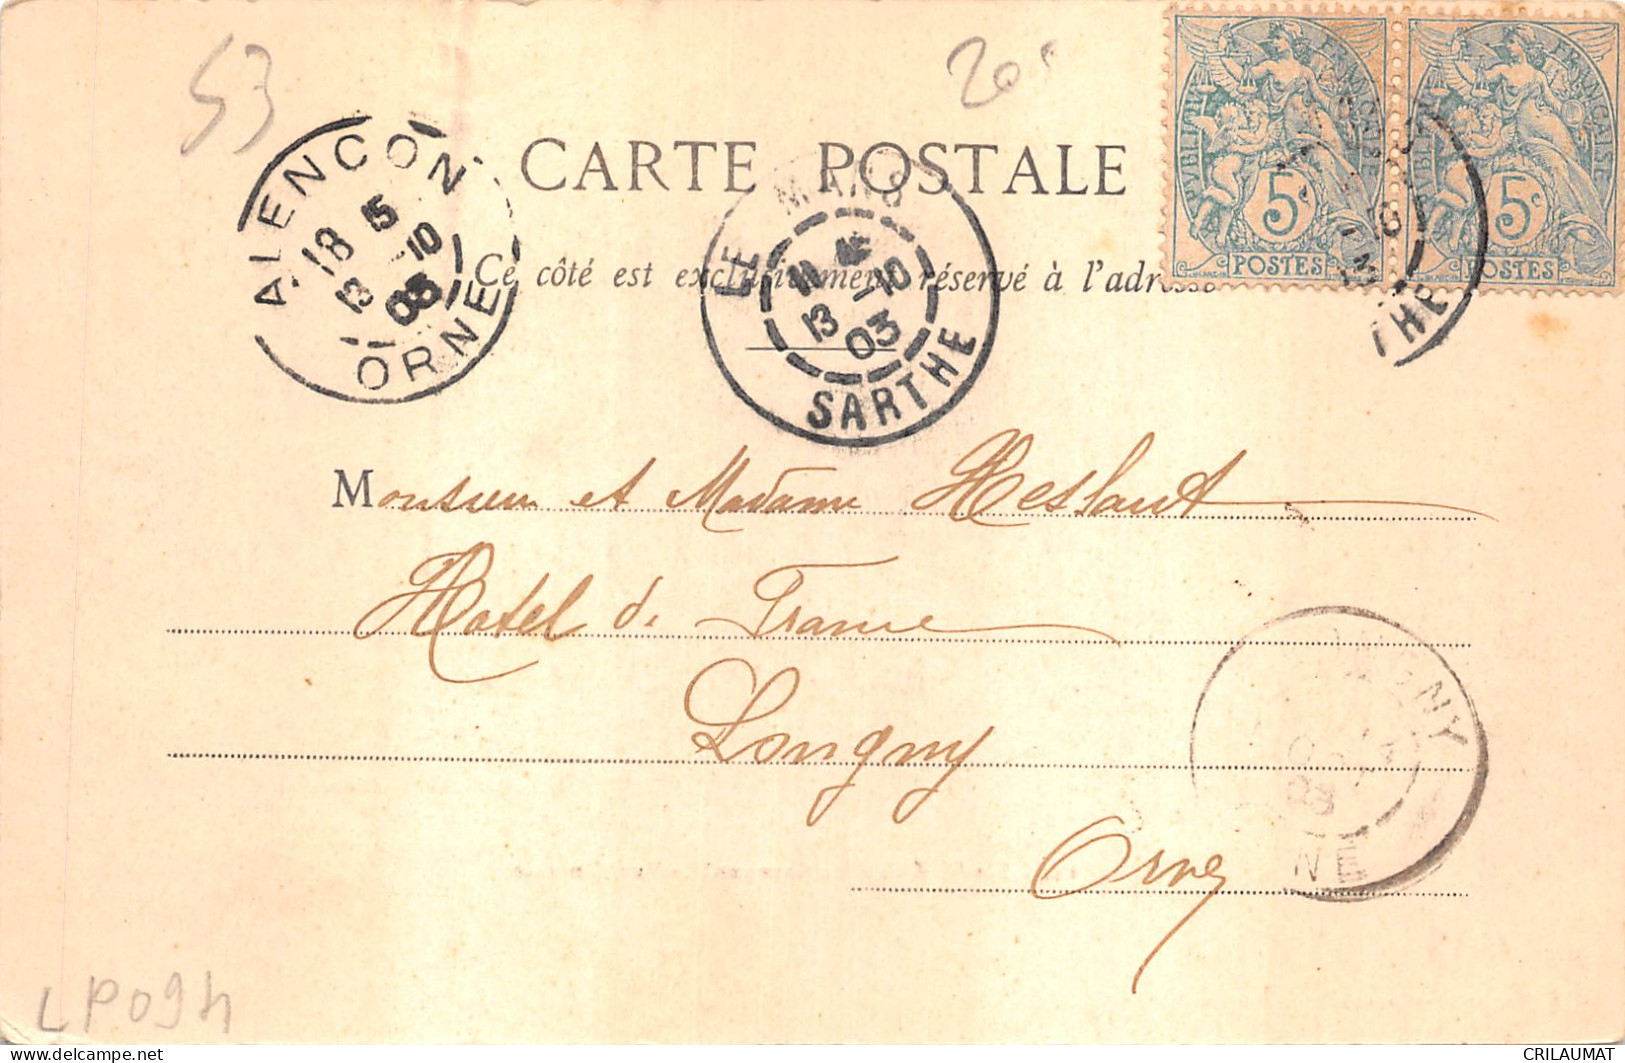 53
20
RÉPUBLIQUE FRANÇAISE
5c
POSTES
RÉPUBLIQUE FRANÇAISE
5c
POSTES
ALENCON
18 15
13 -10
03
ORNE
CARTE POSTALE
LE MANS
13 -10
03
SARTHE
Ce côté est exclusivement réservé à l'adresse
THE
Monsieur et Madame Heslaut
Hotel de France
Longny
Orne
NE
LP094
delcampe.net
CRILAUMAT